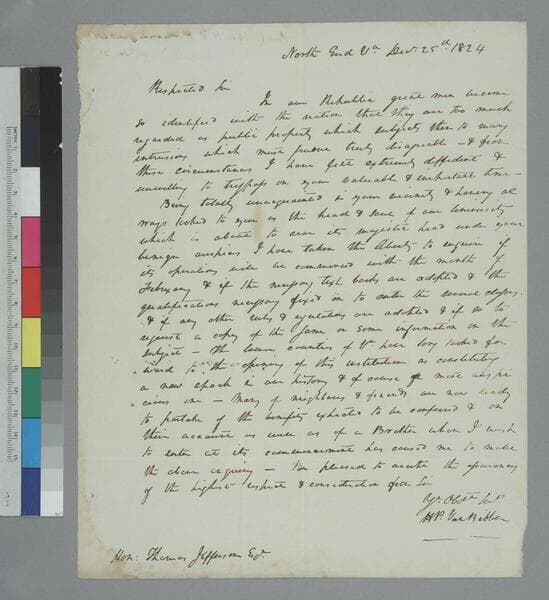 North End Va Decr. 25th 1824
Respected Sir
In our Republic great men become
so identified with the nation that they are too much
regarded as public property which subjects them to many
intrusions which must prove truly disagreeable - & from
these circumstances I have felt extremely diffident &
unwilling to trespass on your valuable & inestimable time -
Being totally unacquainted in your vicinity & having al
ways looked to you as the head & soul of our University
which is about to rear its majestic head under your
benign auspices I have taken the liberty to enquire if
its operations will be commenced with the month of
February & if the necessary text books are adopted & the
qualifications necessary fixed on to enter the several classes
& if any other rules & regulations are adopted & if so to
request a copy of the same or some information on the
subject - The lower counties of Va have long looked for
ward to the opening of this institution as constituting
a new epoch in our history & of course a most auspi
cious one - Many of neighbours & friends are now ready
to partake of the benefits expected to be conferred & on
their account as well as of a Brother whom I wish
to enter at its commencement has caused me to make
the above inquiry - Be pleased to accept the assurances
of the highest respect & consideration from Sir
Yr. Obdt. Servt.
H. P. Van Bibber
Hon: Thomas Jefferson Esqr.